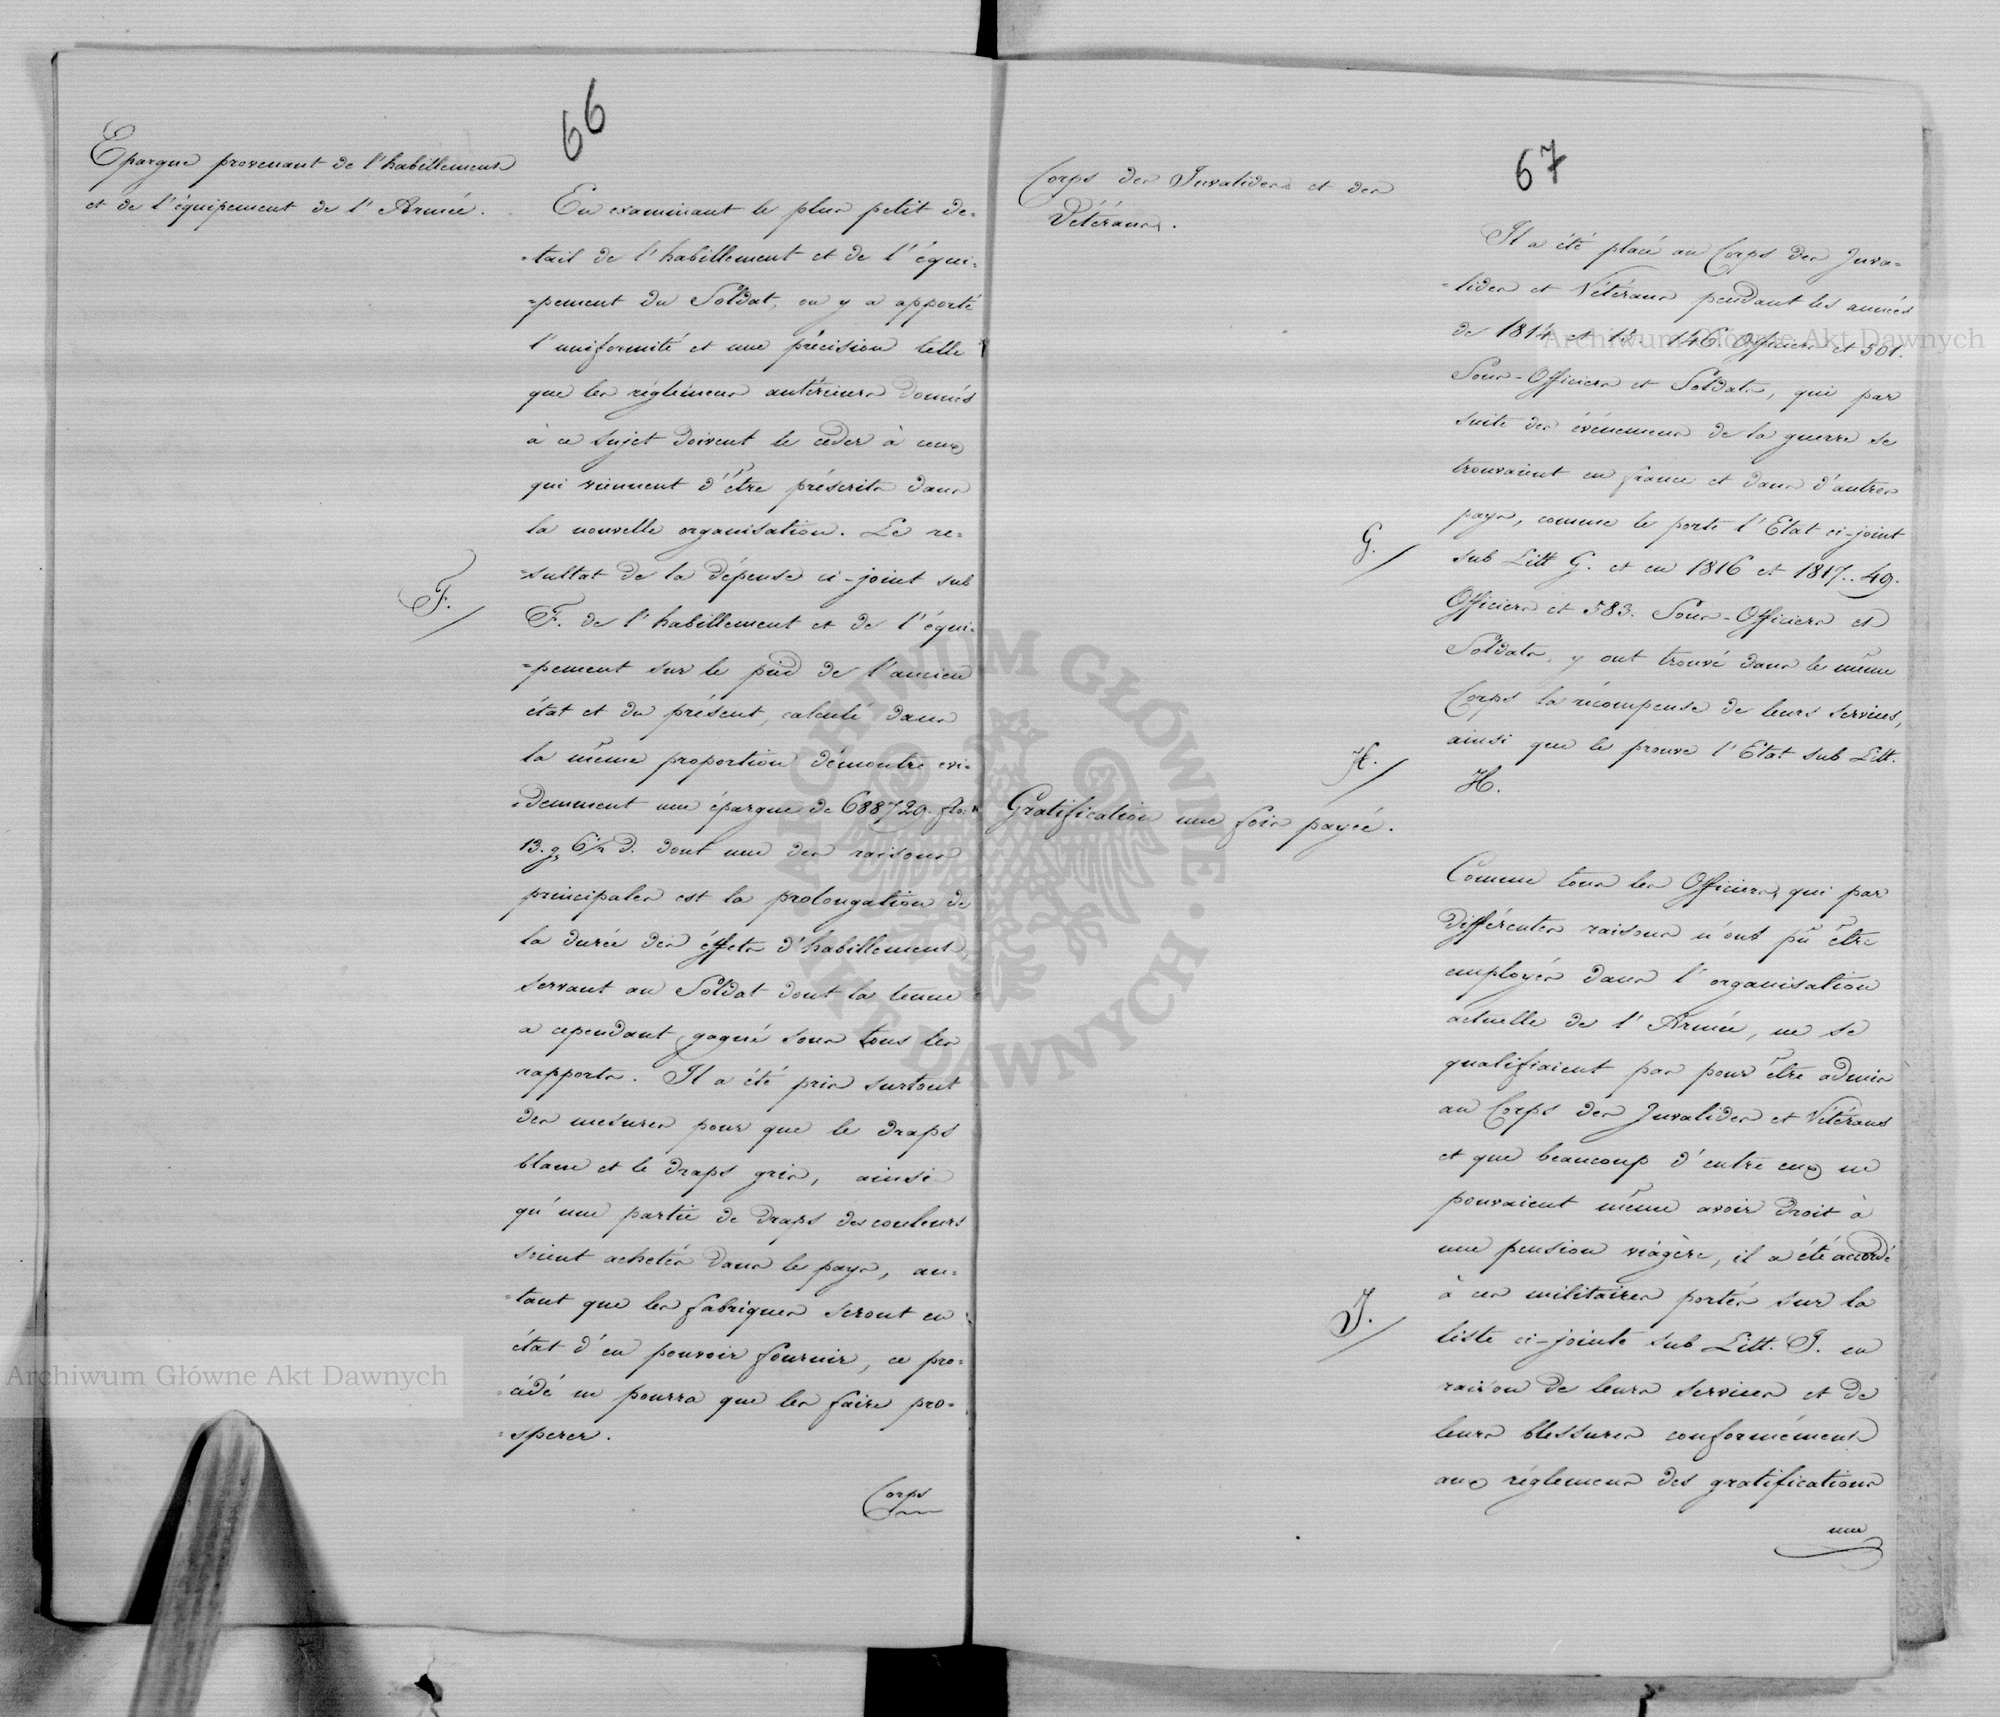 66
Epargne provenant de l'habillement
et de l'équipement de l'Armée.
En examinant le plus petit de-
-tail de l'habillement et de l'équi-
-pement du Soldat, on y a apporté
l'uniformité et une précision telle
que les réglémens antérieurs donnés
à ce sujet doivent le ceder à ceux
qui viennent d'être préscrits dans
la nouvelle organisation. Le re-
-sultat de la dépense ci-joint sub
F./
F. de l'habillement et de l'équi-
-pement sur le pied de l'ancien
état et du présent, calculé dans
la même proportion démontre evi-
-demment une épargne de 688729. flo:
13. g 6½ d. dont une des raisons
principales est la prolongation de
la durée des éffets d'habillement,
servant au Soldat dont la tenue
a cependant gagné sous tous les
rapports. Il a été pris surtout
des mesures pour que le draps
blanc et le draps gris, ainsi
qu'une partie de draps des couleurs
soient achetés dans le pays, au-
-tant que les fabriques seront en
état d'en pouvoir fournir, ce pro-
-cédé ne pourra que les faire pro-
-sperer.
Corps
67
Corps des Invalides et des
Vétérans.
Il a été placé au Corps des Inva-
-lides et Vétérans pendant les années
de 1814 et 15. 146 Officiers et 501.
Sous-Officiers et Soldats, qui par
suite des événemens de la guerre se
trouvaient en france et dans d'autres
pays, comme le porte l'Etat ci-joint
G./
sub Litt G. et en 1816 et 1817.. 49.
Officiers et 583. Sous-Officiers et
Soldats, y ont trouvé dans le même
Corps la récompense de leurs services,
ainsi que le prouve l'Etat sub Litt.
H./
H.
Gratification une fois payée.
Comme tous les Officiers, qui par
différentes raisons n'ont pû être
employés dans l'organisation
actuelle de l'Armée, ne se
qualifiaient pas pour être admis
au Corps des Invalides et Vétérans
et que beaucoup d'entre eux ne
pouvaient même avoir droit à
une pension viagère, il a été accordé
à ces militaires portés sur la
J./
liste ci-jointe sub Litt. J. en
raison de leurs services et de
leurs blessures conformément
aux réglemens des gratifications
une
Archiwum Główne Akt Dawnych
Archiwum Główne Akt Dawnych
ARCHIWUM GŁÓWNE · AKT DAWNYCH ·